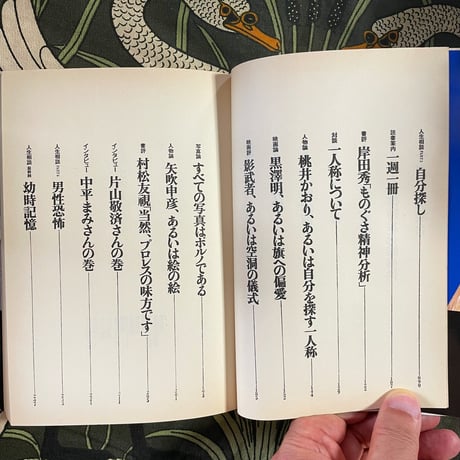 人生相談 自分探し
読書案内 一週一冊
書評 岸田秀「ものぐさ精神分析」
対談 一人称について
人物論 桃井かおり、あるいは自分を探す一人称
映画論 黒澤明、あるいは旗への偏愛
映画評 影武者、あるいは空洞の儀式
写真論 すべての写真はポルノである
人物論 矢吹申彦、あるいは絵の絵
書評 村松友視「当然、プロレスの味方です」
インタビュー 片山敬済さんの巻
インタビュー 中平まみさんの巻
人生相談 男性恐怖
人生相談 幼時記憶